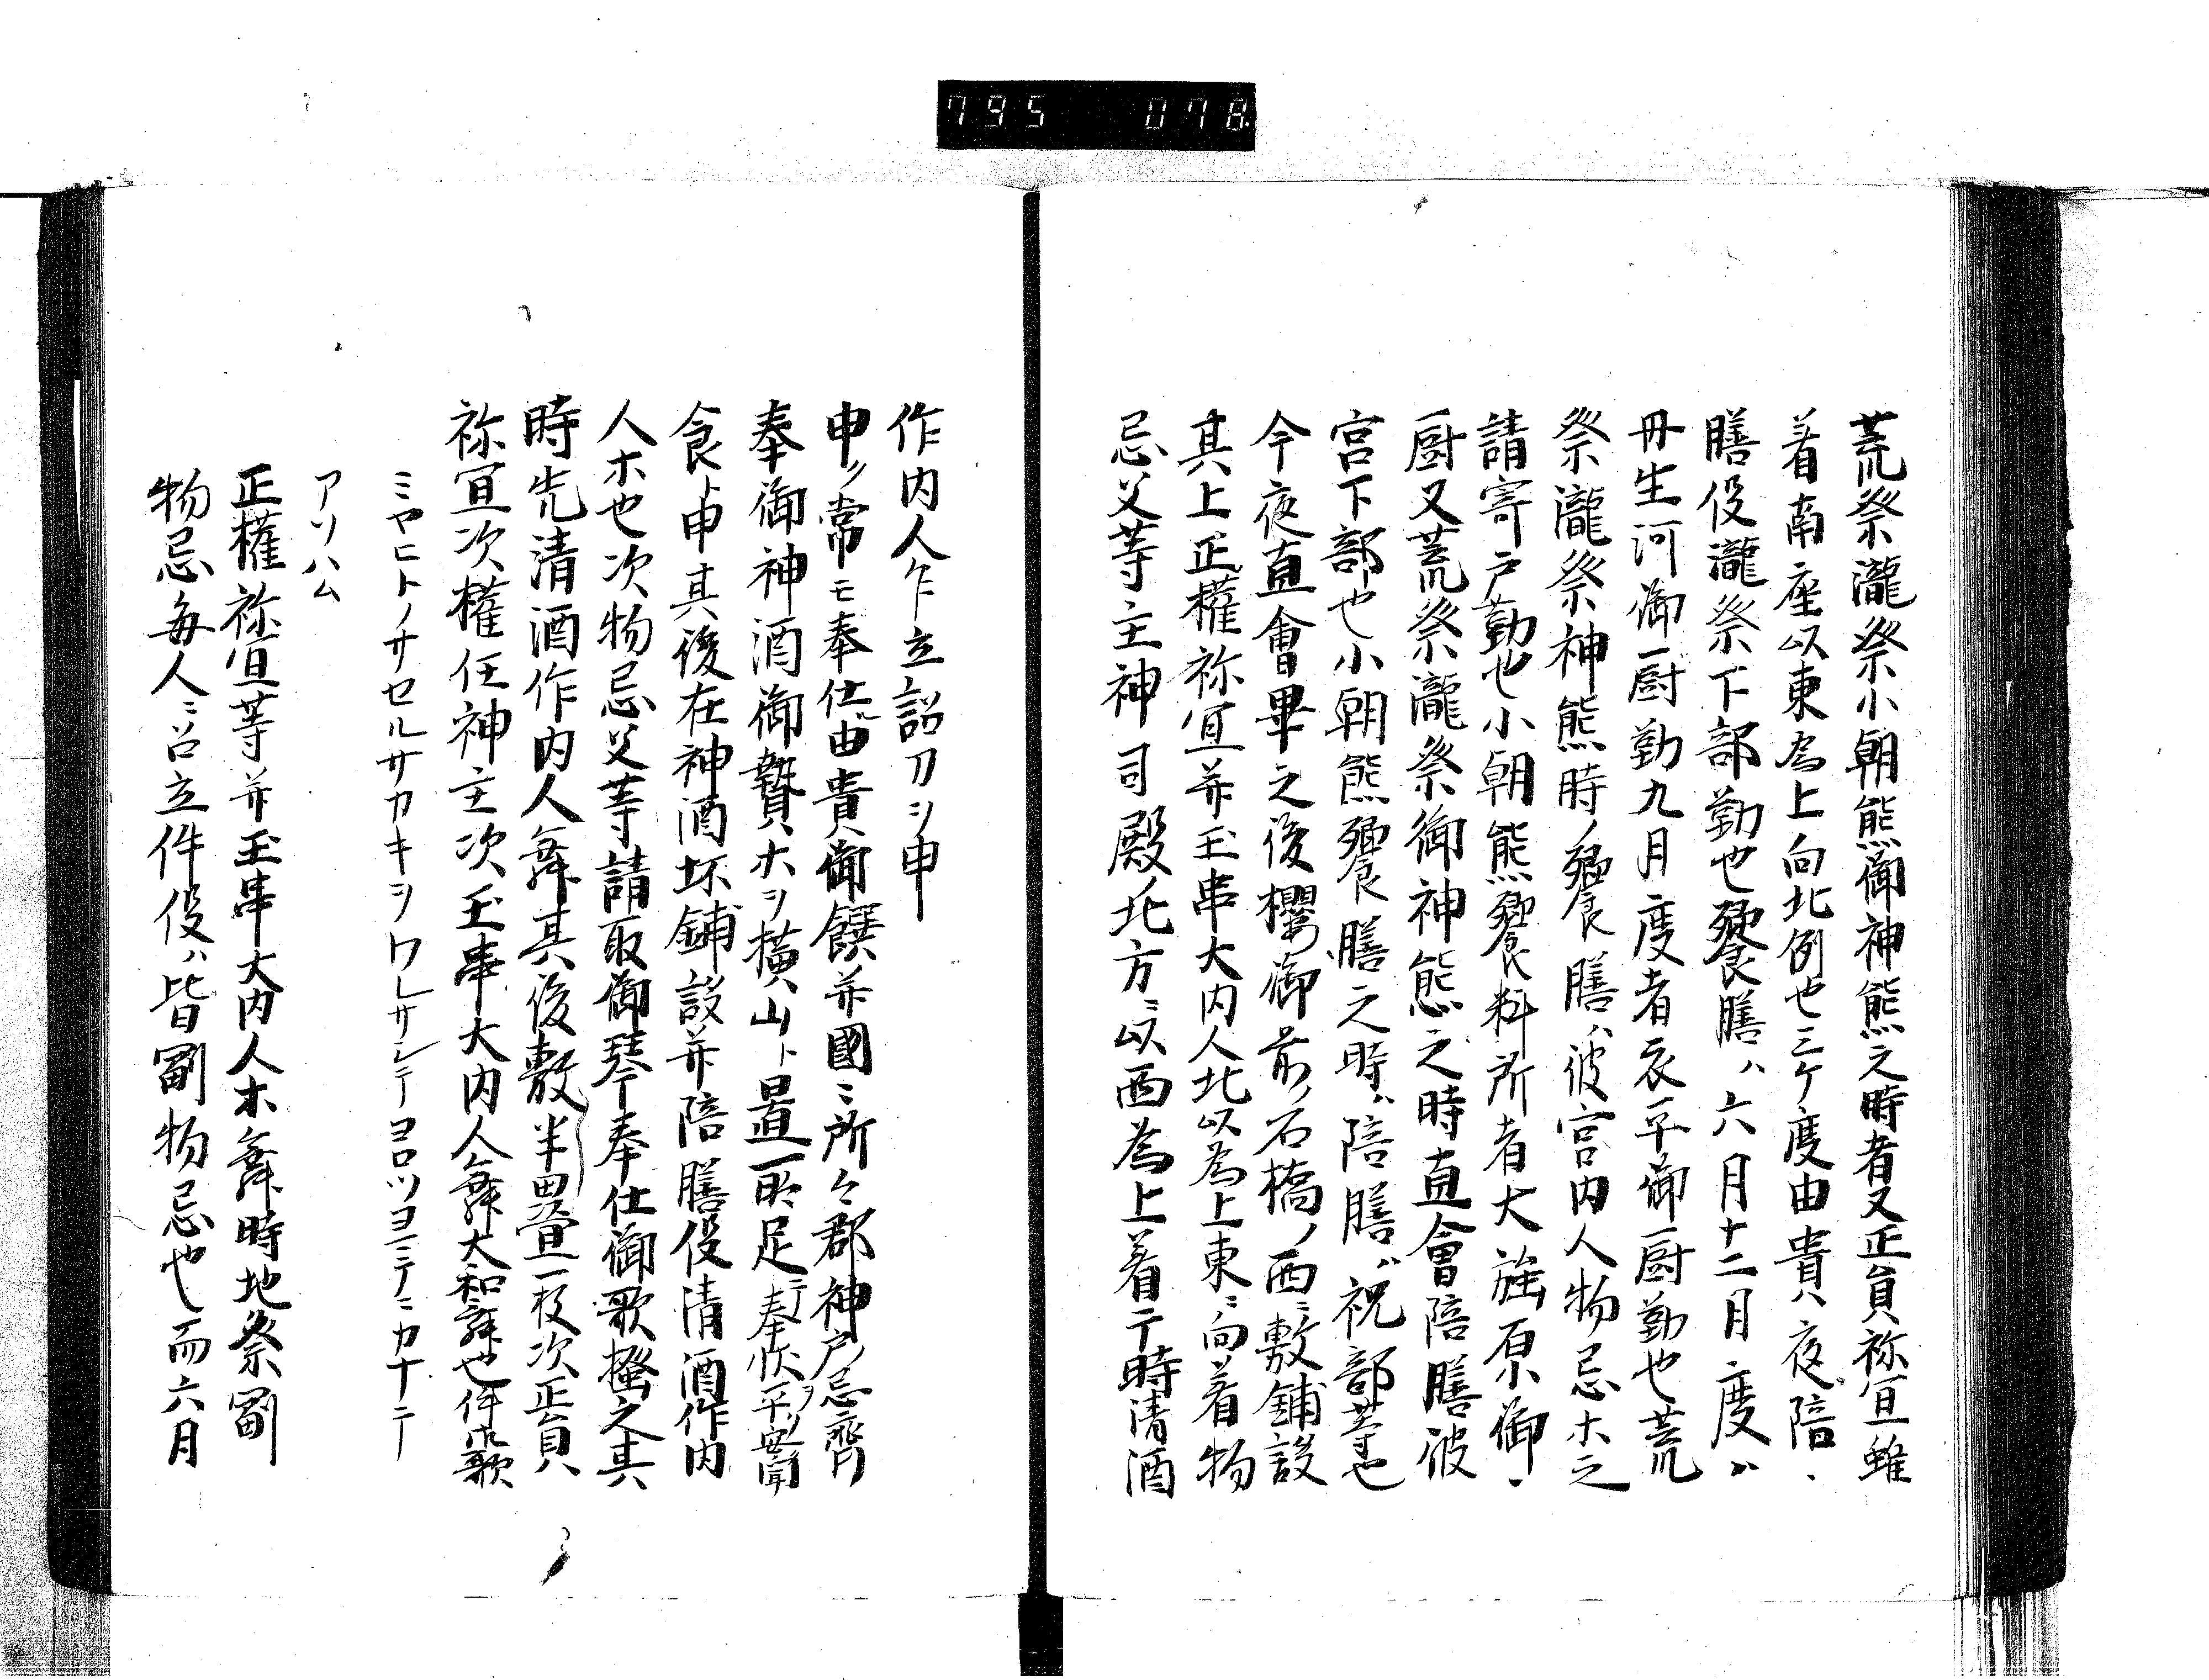 795 078
荒祭瀧祭小朝熊御神熊之時者又正員祢宜雖
着南座以東為上向北例也三ケ度由貴ハ夜陪ヽ
膳役瀧祭下部勤也饗膳ハ六月十二月度ハ
丹生河御厨勤九月度者衣平御厨勤也荒
祭瀧祭神熊時ノ饗膳ハ彼宮内人物忌ホ之
請寄戸勤也小朝熊饗料所者大旍原御ヽ
厨又荒祭瀧祭御神態之時直會陪膳彼
宮下部也小朝熊饗膳之時ハ陪膳ハ祝部等也
今夜直會畢之後櫻御前ノ石橋ノ西ニ敷鋪設
其上正權祢宜并玉串大内人北以為上東ニ向着物
忌父等主神司殿北方ニ以西為上着于時清酒
作内人乍立詔刀ヲ申
申ク常モ奉仕由貴御饌并國ニ所々郡神戸ノ忌齊
奉御神酒御贄ホヲ横山ト置所足テ奉状ヲ平安聞
食ト申其後在神酒坏鋪設并陪膳役清酒作内
人ホ也次物忌父等請取御琴奉仕御歌掻之其
時先清酒作内人舞其後敷半畳一枚次正員
祢宜次權任神主次玉串大内人舞大和舞也件哥歌
ミヤヒトノサセルサカキヲワレサシテヨロツヨニテニカナテ
アソハム
正權祢宜等并玉串大内人ホ舞時地祭副
物忌毎人ニ召立件役ハ皆副物忌也而六月